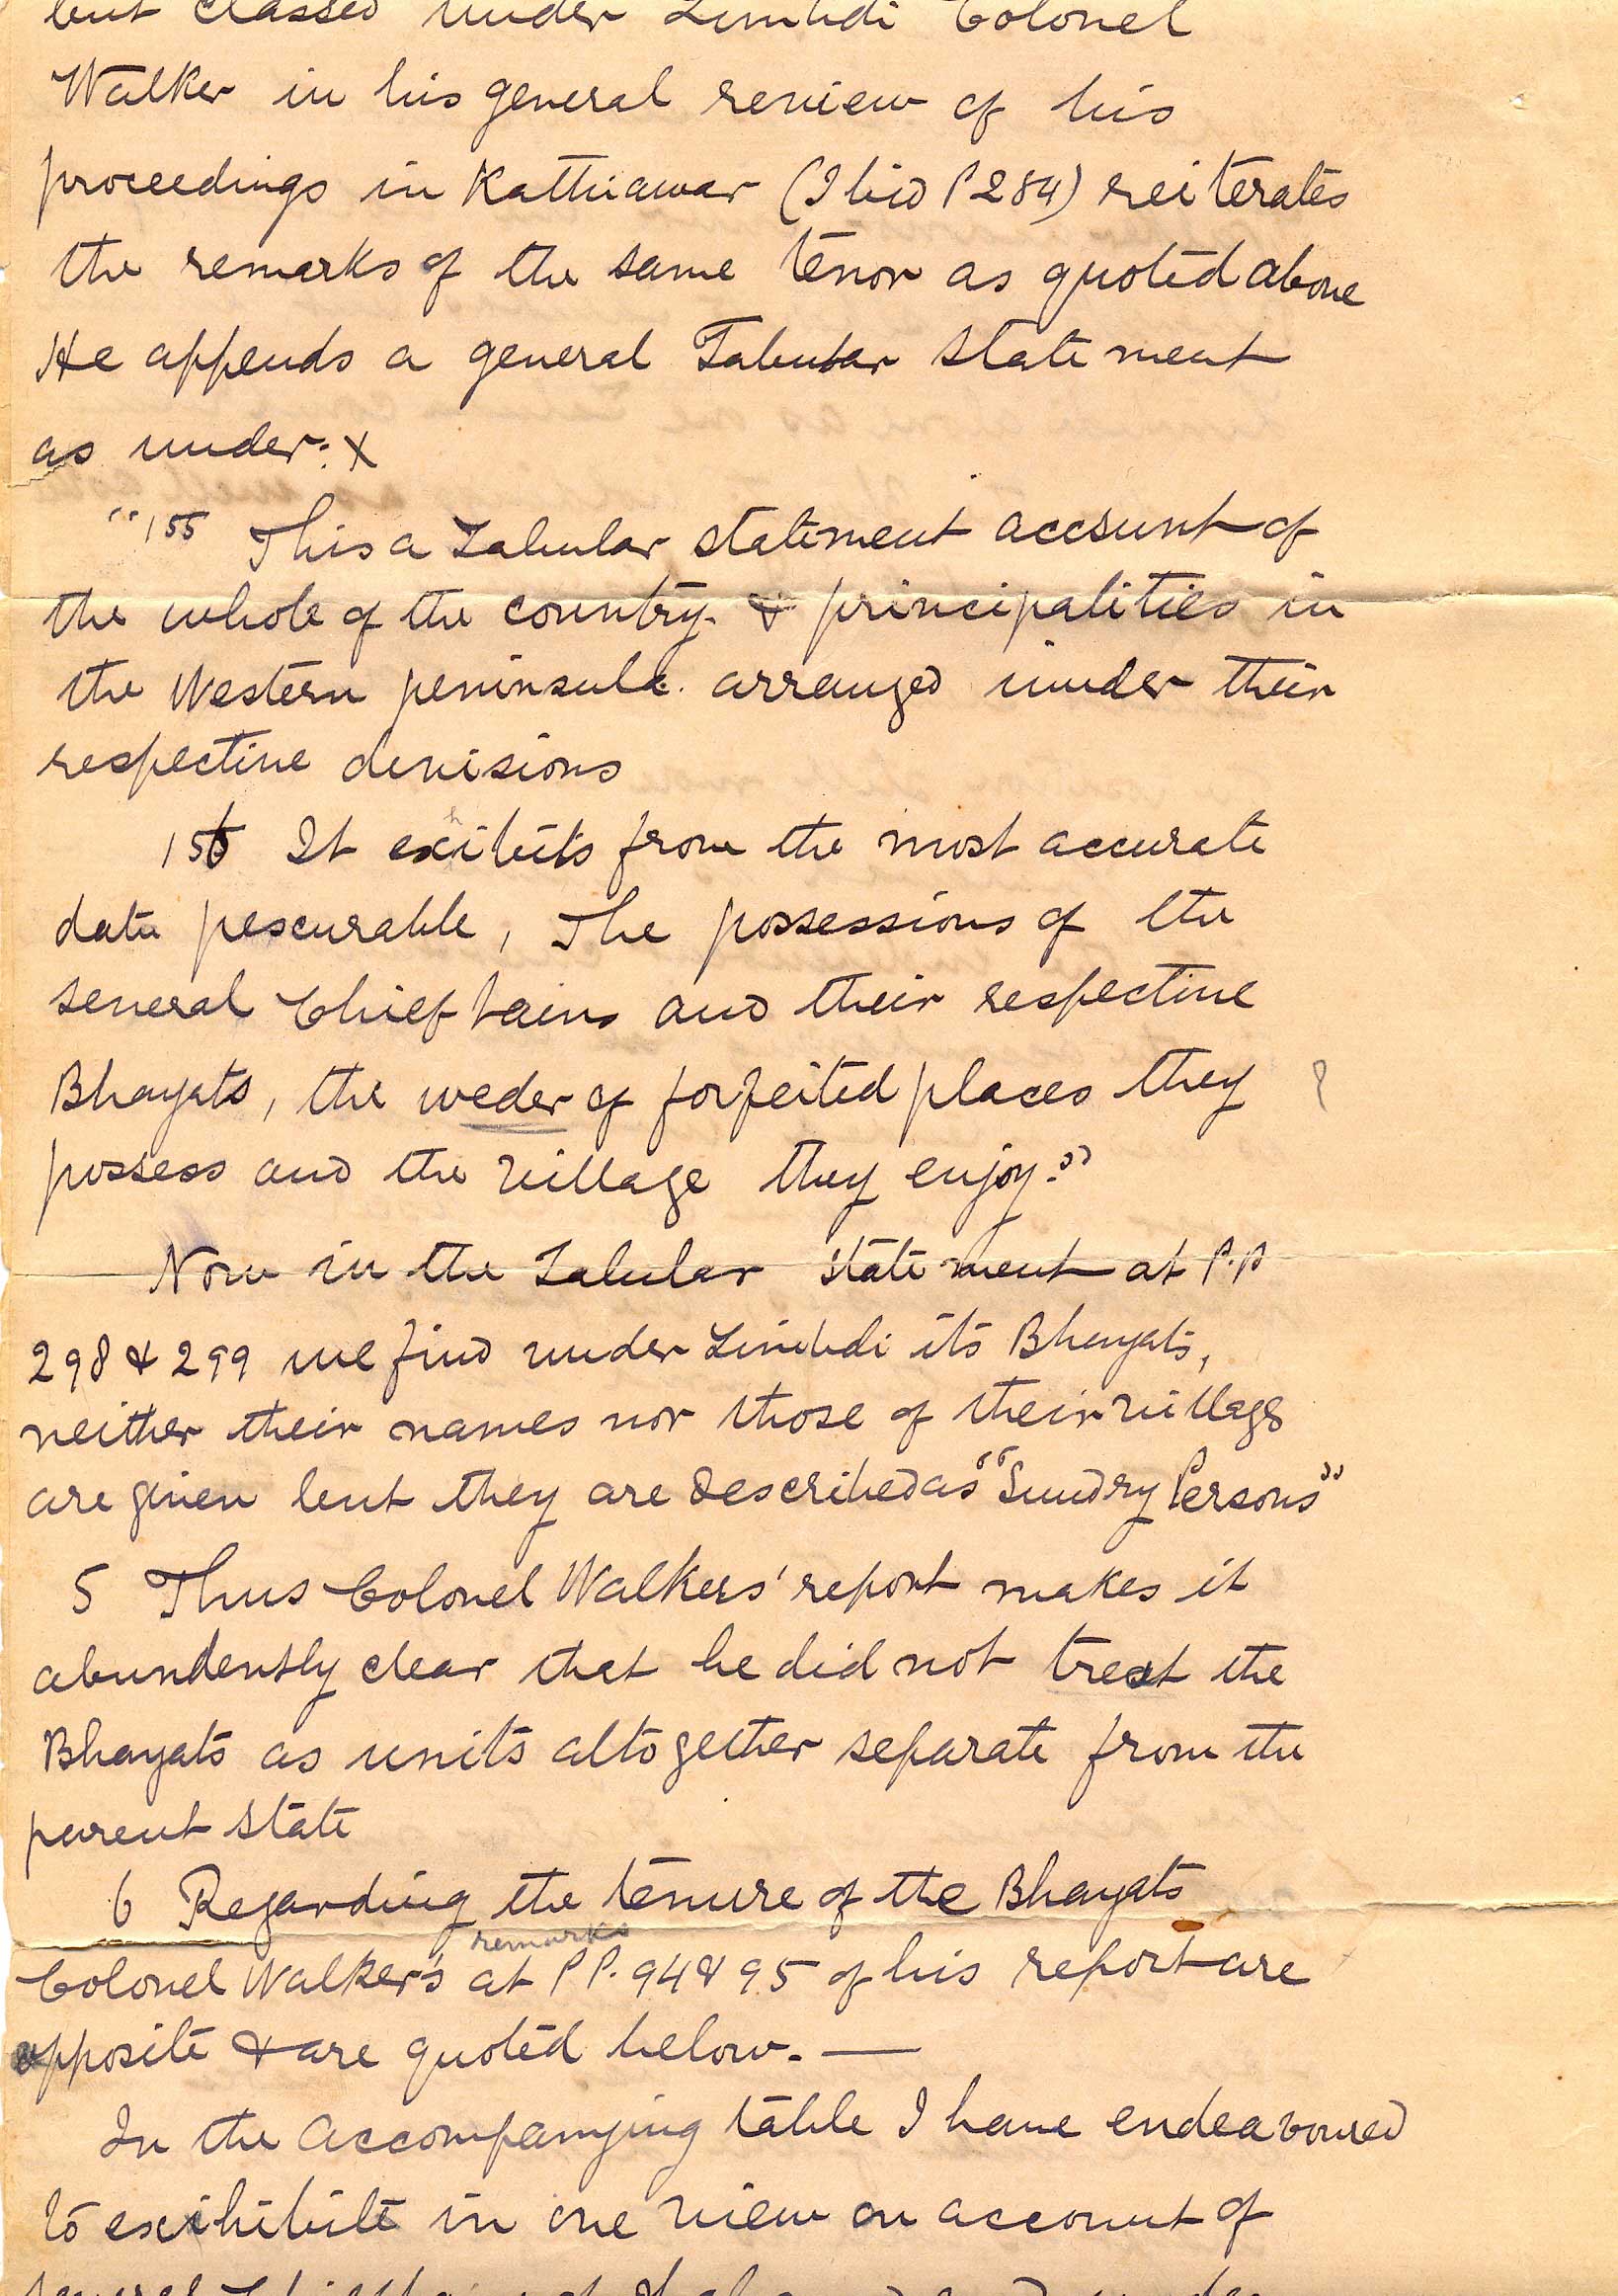 but classed under Limbdi Colonel
Walker in his general review of his
proceedings in Kathiawar (Ibid P 284) reiterates
the remarks of the same tenor as quoted above
He appends a general Tabular statement
as under: x
"155 This a Tabular statement account of
the whole of the country & principalities in
the Western peninsula. arranged under their
respective divisions
156 It exhibits from the most accurate
data pescurable, The possessions of the
several Chieftains and their respective
Bhayats, the weder of forfeited places they ?
possess and the village they enjoy."
Now in the Tabular statement at P.P
298 & 299 we find under Limbdi its Bhayats,
neither their names nor those of their village
are given but they are described as "Sundry Persons"
5 Thus Colonel Walkers' report makes it
abundently clear that he did not treat the
Bhayats as units altogether separate from the
parent state
6 Regarding the tenure of the Bhayats
remarks
Colonel Walker's at P P. 94 & 95 of his report are
opposite & are quoted below. —
In the accompanying table I have endeavoured
to exihibite in one view an account of